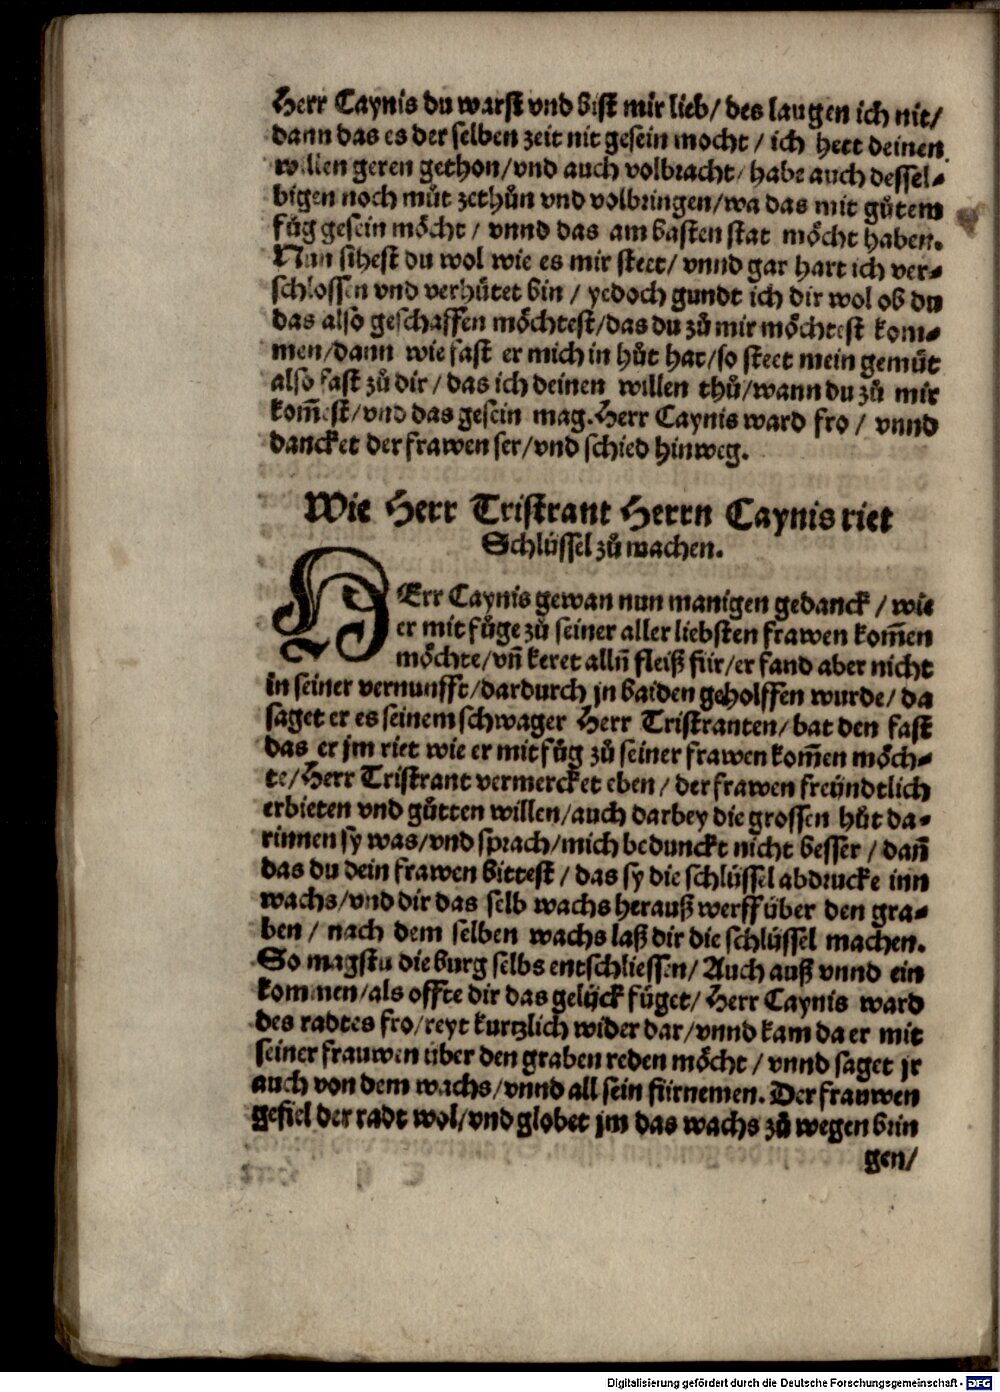 Herr Caynis du warst vnd bist mir lieb/ des laugen ich nit/
dann das es der selben zeit nit gesein mocht / ich hett deinen
willen geren gethon/vnd auch volbracht/ habe auch dessel⸗
bigen noch můt zethůn vnd volbringen/wa das mit gůtem
fůg gesein möcht / vnnd das am basten stat möcht haben.
Nun sihest du wol wie es mir steet/ vnnd gar hart ich ver⸗
schlossen vnd verhůtet bin / yedoch gundt ich dir wol ob du
das also geschaffen möchtest/das du zů mir möchtest kom⸗
men/dann wie fast er mich in hůt hat/so steet mein gemůt
also fast zů dir / das ich deinen willen thů/wann du zů mir
kom̄est/vnd das gesein mag. Herr Caynis ward fro / vnnd
dancket der frawen ser/vnd schied hinweg.
Wie Herr Tristrant Herrn Caynis riet
Schlüssel zů machen.
HErr Caynis gewan nun manigen gedanck / wie
er mit fůge zů seiner aller liebsten frawen kom̄en
möchte/vn̄ keret alln̄ fleiß für/er fand aber nicht
in seiner vernunfft/dardurch jn baiden geholffen wurde/ da
saget er es seinem schwager Herr Tristranten/ bat den fast
das er jm riet wie er mit fůg zů seiner frawen kom̄en möch⸗
te/Herr Tristrant vermercket eben / der frawen freündtlich
erbieten vnd gůtten willen/auch darbey die grossen hůt da⸗
rinnen sy was/vnd sprach/mich bedunckt nicht besser / dan̄
das du dein frawen bittest / das sy die schlüssel abdrucke inn
wachs/vnd dir das selb wachs herauß werff über den gra⸗
ben / nach dem selben wachs laß dir die schlüssel machen.
So magstu die burg selbs entschliessen/ Auch auß vnnd ein
kommen/als offte dir das gelück füget/ Herr Caynis ward
des radtes fro/reyt kurtzlich wider dar/vnnd kam da er mit
seiner frauwen über den graben reden möcht / vnnd saget jr
auch von dem wachs/vnnd all sein fürnemen. Der frauwen
gefiel der radt wol/vnd globet jm das wachs zů wegen brin
gen/
Digitalisierung gefördert durch die Deutsche Forschungsgemeinschaft - DFG